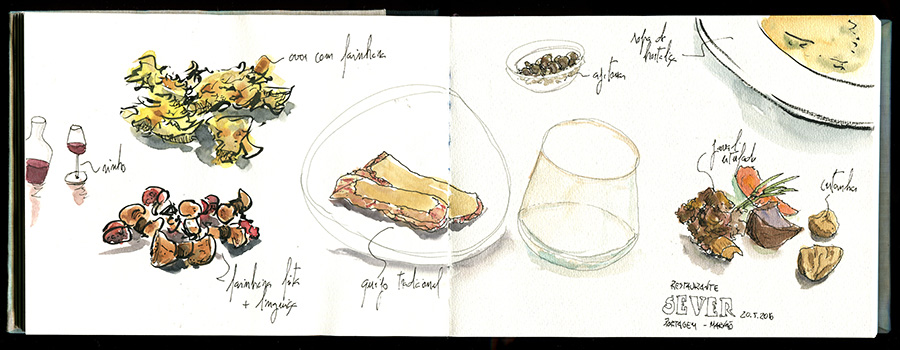 ovos com farinheira
vinho
farinheira frita
+ linguiça
queijo tradicional
azeitonas
sopa de
hortaliça
javali
estufado
castanhas
RESTAURANTE
SEVER 20.5.2015
PORTAGEM - MARVÃO